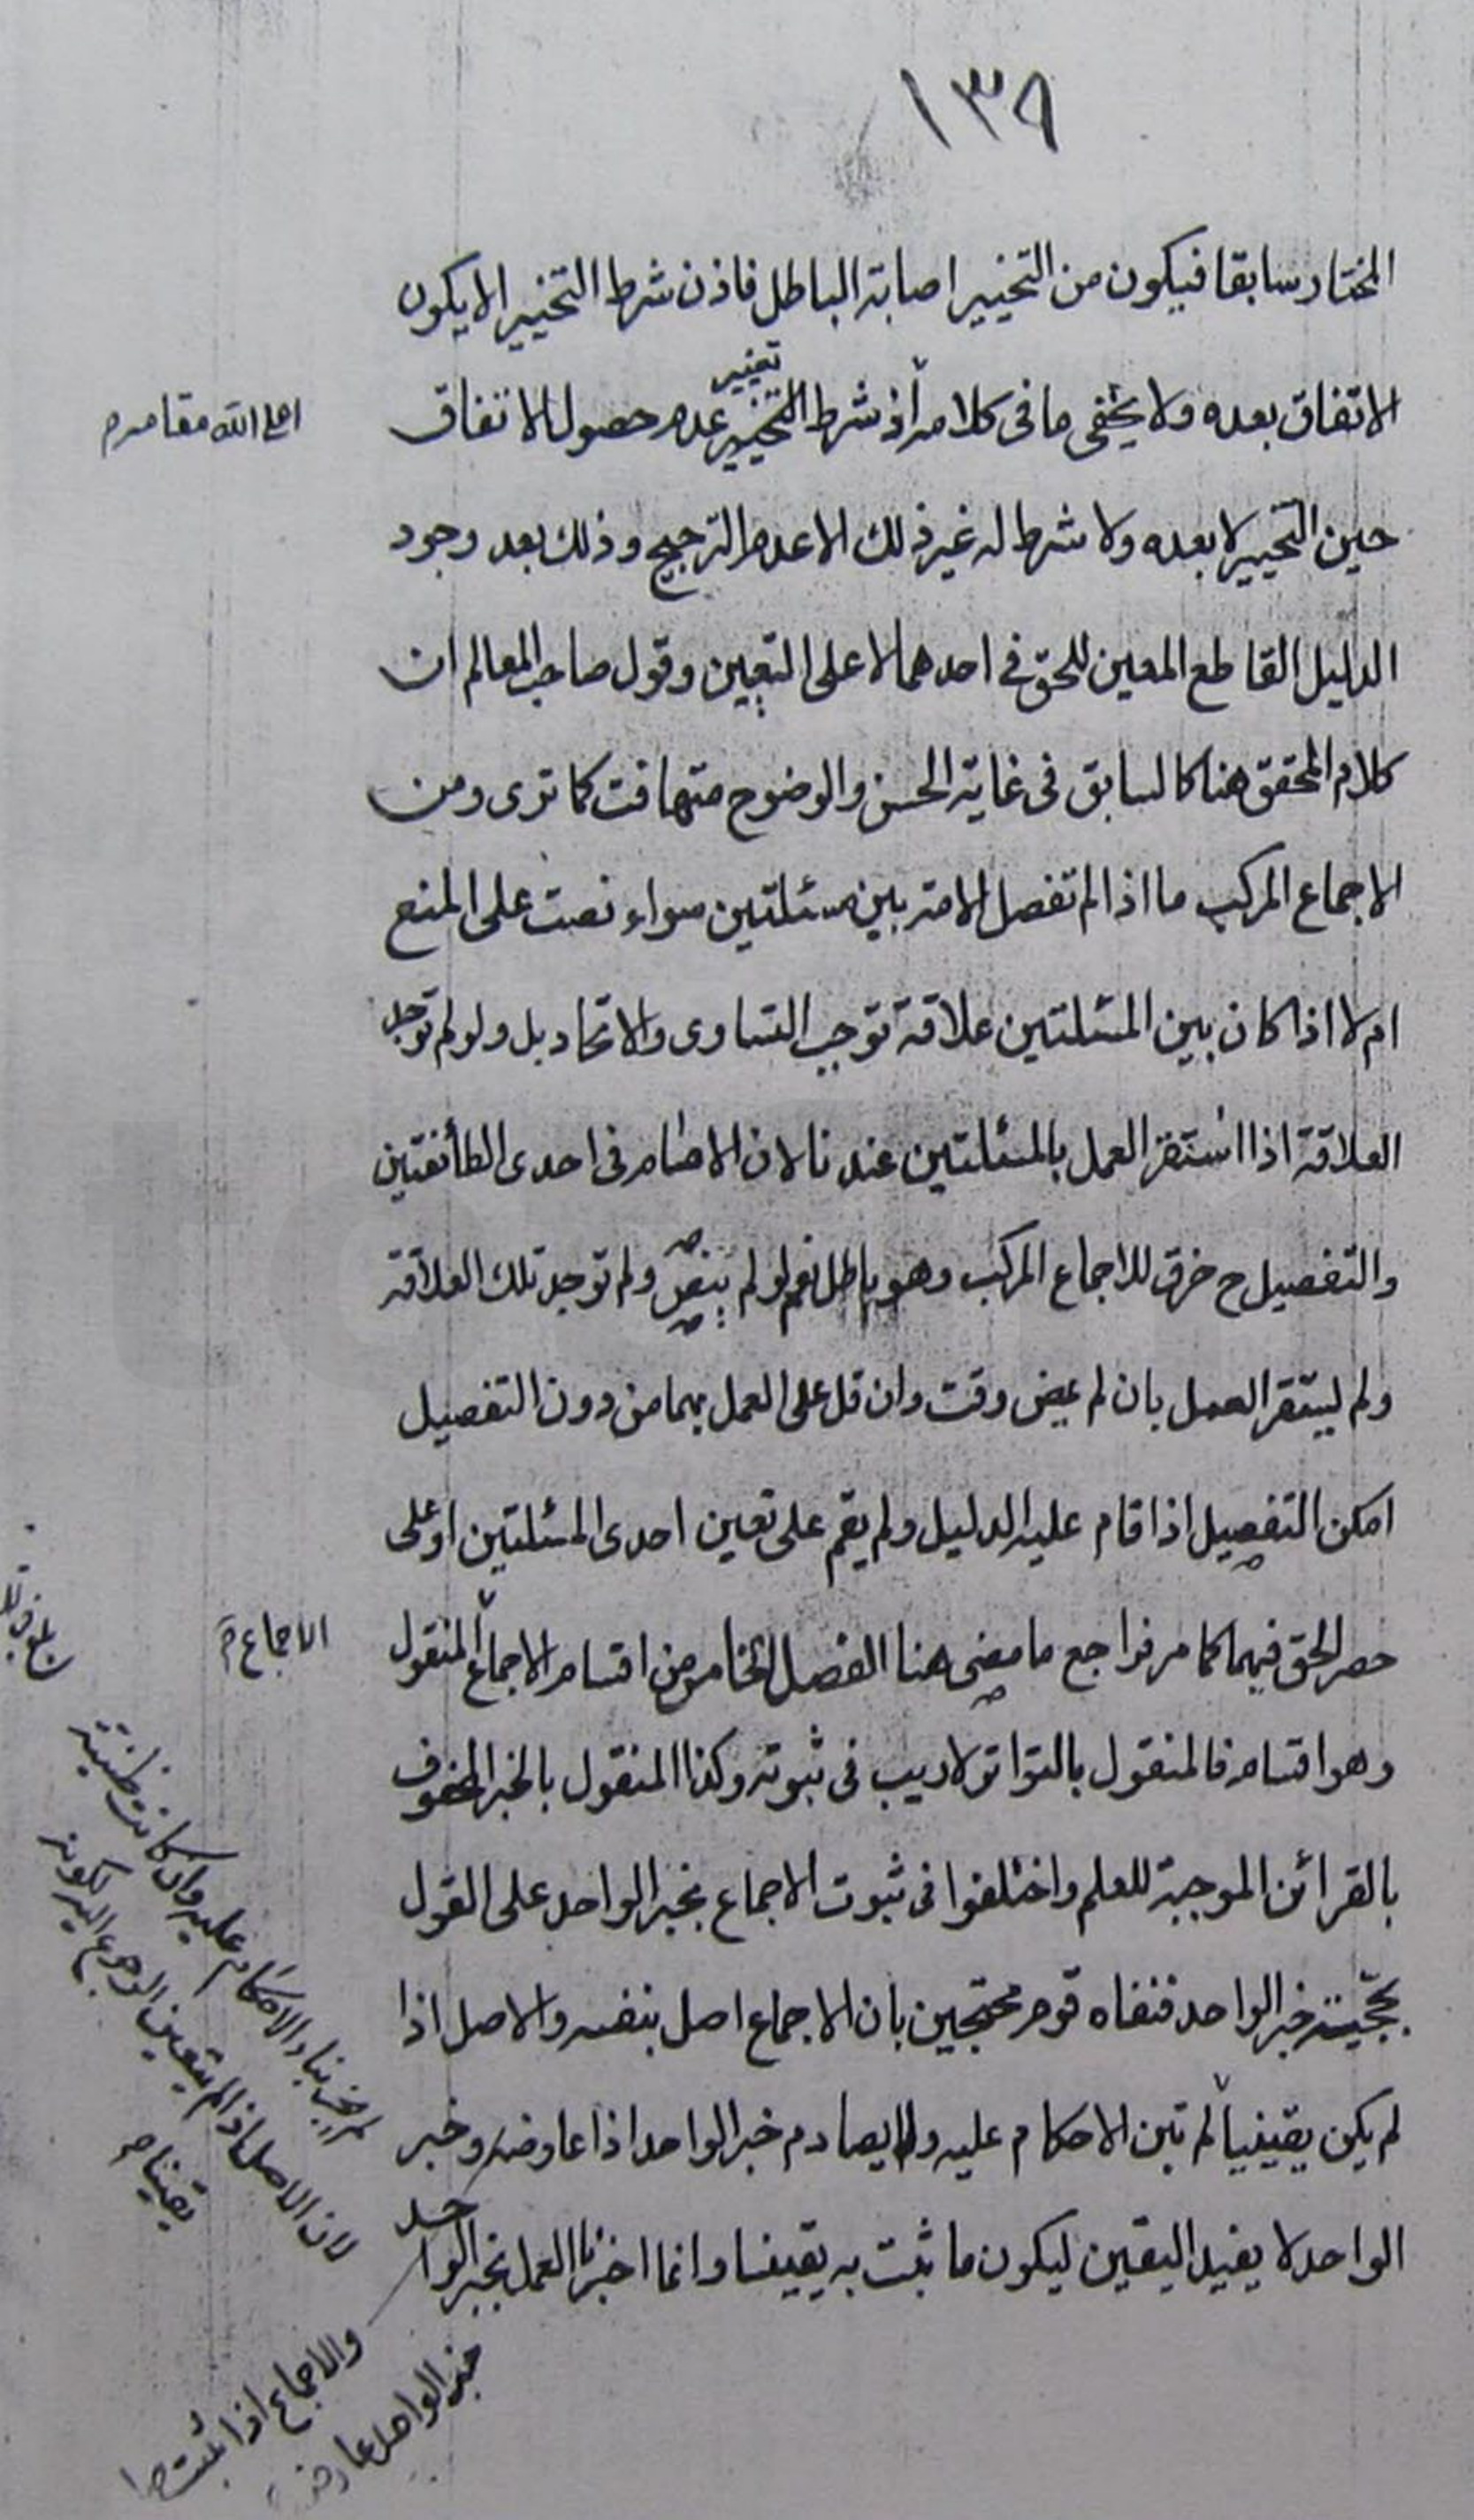 ١٣٩
المختار سابقا فيكون من التخيير اصابة الباطل فاذن شرط التخيير الا يكون
تغيير
الاتفاق بعده ولا يخفى ما فى كلامه اذ شرط التخيير عدم حصول الاتفاق
اعلى الله مقامه م
حين التخيير لا بعده ولا شرط له غير ذلك الا عدم الترجيح وذلك بعد وجود
الدليل القاطع المعين للحق فى احدهما لا على التعيين وقول صاحب المعالم ان
كلام المحقق هنا كالسابق فى غاية الحسن والوضوح متهافت كما ترى ومن
الاجماع المركب ما اذا لم تفصل الامة بين مسئلتين سواء نصت على المنع
ام لا اذا كان بين المسئلتين علاقة توجب التساوى والاتحاد بل ولو لم توجد
العلاقة اذا استقر العمل بالمسئلتين عندنا لان الامام فى احدى الطائفتين
والتفصيل ح خرق للاجماع المركب وهو باطل نعم لو لم ينص ولم توجد تلك العلاقة
ولم يستقر العمل بان لم يمض وقت وان قل على العمل بهما من دون التفصيل
امكن التفصيل اذا قام عليه الدليل ولم يقم على تعين احدى المسئلتين او على
حصر الحق فيهما كما مر فراجع ما مضى هنا الفصل الخامس من اقسام الاجماع المنقول
الاجماع م
وهو اقسام فالمنقول بالتواتر لا ريب فى ثبوته وكذا المنقول بالخبر المحفوف
بالقرائن الموجبة للعلم واختلفوا فى ثبوت الاجماع بخبر الواحد على القول
بحجية خبر الواحد فنفاه قوم محتجين بان الاجماع اصل بنفسه والاصل اذا
لم يكن يقينيا لم تبن الاحكام عليه ولا يصادم خبر الواحد اذا عارضه وخبر
الواحد لا يفيد اليقين ليكون ما ثبت به يقينا وانما اخترنا العمل بخبر الواحد
لم يجز بناء الاحكام عليه وان كانت ظنية
لان الاصل اذا لم يتعين الرجوع اليه لكونه
يقينا م
والاجماع اذا ثبت
خبر الواحد عارضه